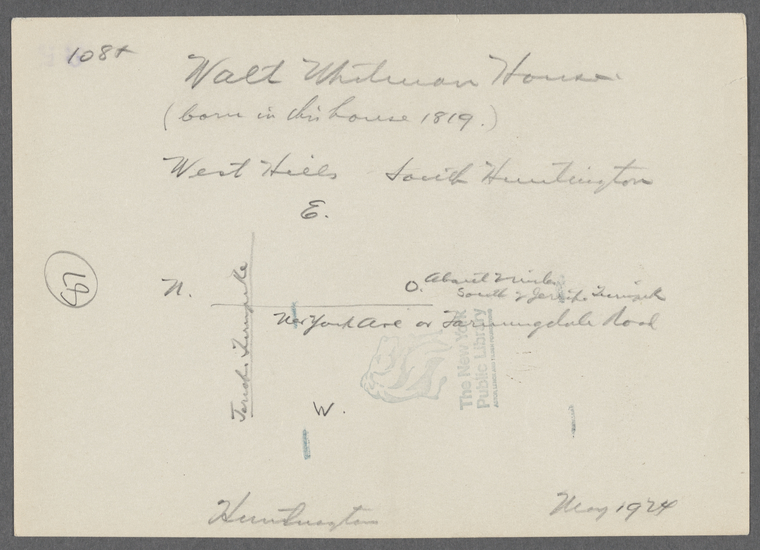 108+
Walt Whitman House
(born in this house 1819.)
West Hills South Huntington
E.
N.
O. About mile
South of Jericho Turnpike
Jericho Turnpike
New York Ave or Farmingdale Road
The New York
Public Library
W.
Huntington
May 1924